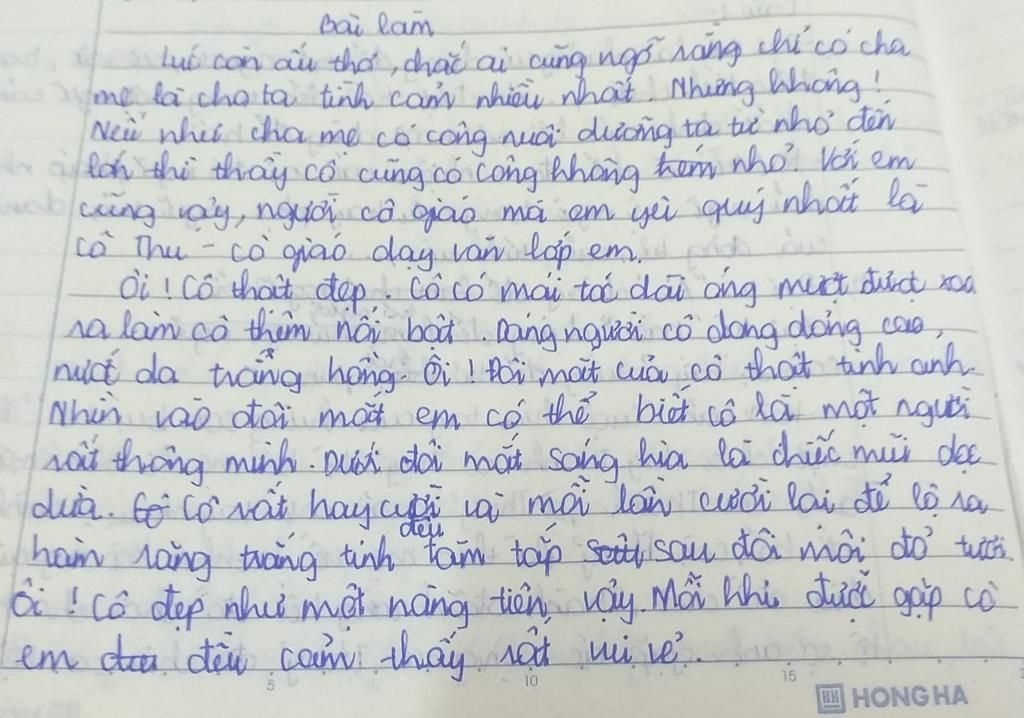 Bài làm
Lúc còn ấu thơ, chắc ai cũng ngỡ rằng chỉ có cha
mẹ là cho ta tình cảm nhiều nhất. Nhưng không!
Nếu như cha mẹ có công nuôi dưỡng ta từ nhỏ đến
lớn thì thầy cô cũng có công không nhỏ. Với em
cũng vậy, người cô giáo mà em yêu quý nhất là
cô Thu - cô giáo dạy văn lớp em.
Ôi! Cô thật đẹp. Cô có mái tóc dài óng mượt được xoã
ra làm cô thêm nổi bật. Dáng người cô dong dỏng cao,
nước da trắng hồng. Ôi! Đôi mắt của cô thật tinh anh.
Nhìn vào đôi mắt em có thể biết cô là một người
rất thông minh. Dưới đôi mắt sáng kia là chiếc mũi dọc
dừa. Cô rất hay cười và mỗi lần cười lại để lộ ra
hàm răng trắng tinh đều tăm tắp sau đôi môi đỏ tươi.
Ôi! Cô đẹp như một nàng tiên vậy. Mỗi khi được gặp cô
em đều cảm thấy rất vui vẻ.
5 10 15
HH HONG HA